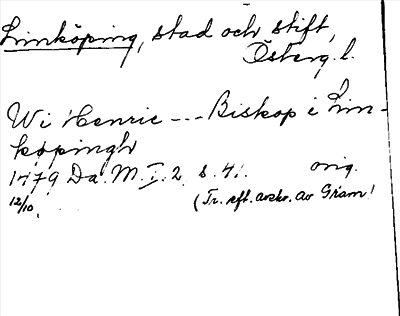 Linköping, stad och stift,
Österg. l.
Wi Henric --- Biskop i Lin-
köpingh
1479 Da. M. I. 2. s. 41. orig.
12/10. (Tr. eft. avskr. av Gram!